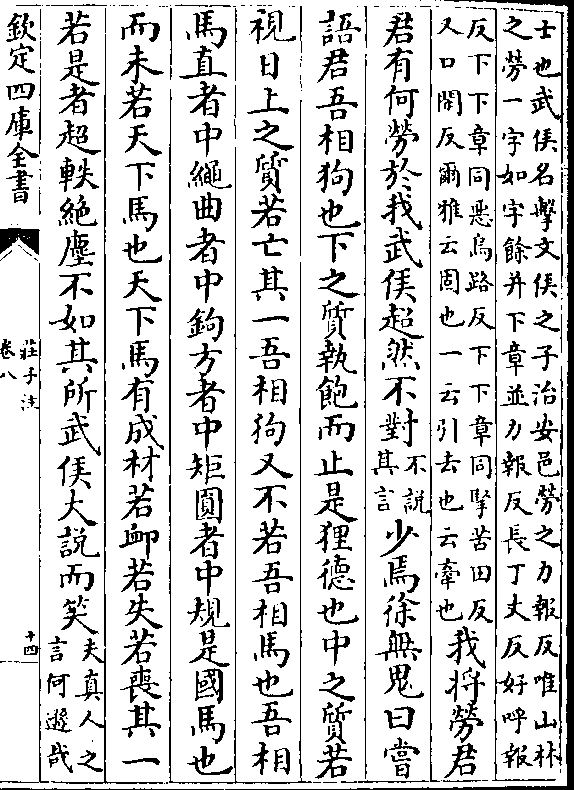 士也武侯名擊文侯之子治安邑勞之力報反唯山林
之勞一字如字餘并下章並力報反長丁丈反好呼報
反下下章同惡烏路反下下章同掔苦田反
又口閑反爾雅云固也一云引去也云牽也
我將勞君
君有何勞於我武侯超然不對
不說
其言
少焉徐無鬼曰嘗
語君吾相狗也下之質執飽而止是狸德也中之質若
視日上之質若亡其一吾相狗又不若吾相馬也吾相
馬直者中繩曲者中鉤方者中矩圓者中規是國馬也
而未若天下馬也天下馬有成材若卹若失若喪其一
若是者超軼絶塵不如其所武侯大說而笑
夫真人之
言何遜哉
欽定四庫全書
莊子注
卷八
十四